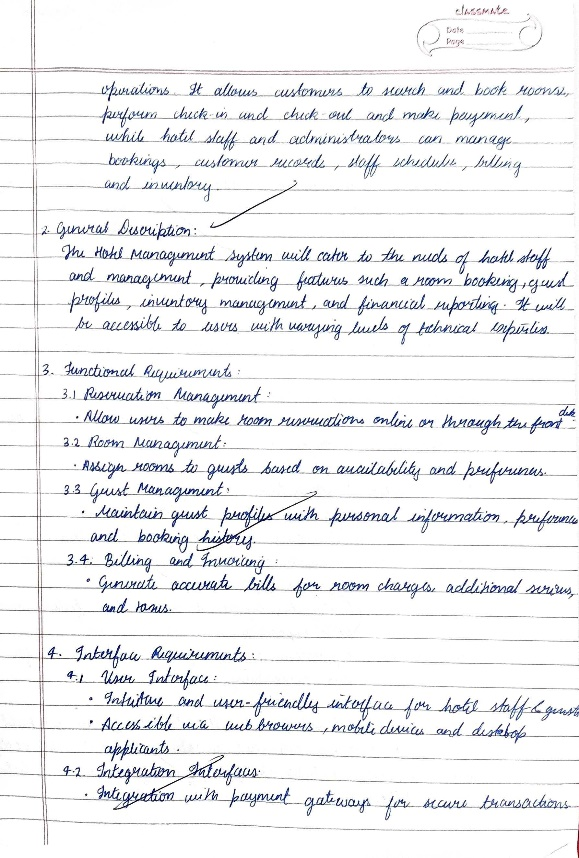 classmate
Date
Page
operations. It allows customers to search and book rooms,
perform check-in and check-out and make payement,
while hotel staff and administrators can manage
bookings, customer records, staff schedules, billing
and inventory.
2. General Description:
The Hotel Management system will cater to the needs of hotel staff
and management, providing features such a room booking, guest
profiles, inventory management, and financial reporting. It will
be accessible to users with varying levels of technical expertise.
3. Functional Requirements:
3.1 Reservation Management:
· Allow users to make room reservations online or through the front desk
3.2 Room Management:
· Assign rooms to guests based on availability and preferences.
3.3 Guest Management:
· Maintain guest profiles with personal information, preference
and booking history.
3.4. Billing and Invoicing:
· Generate accurate bills for room charges, additional services,
and taxes.
4. Interface Requirements:
4.1 User Interface:
· Intuitive and user-friendly interface for hotel staff & guests
· Accessible via web browsers, mobile devices and desktop
applicants.
4.2. Integration Interfaces:
· Integration with payment gateways for secure transactions